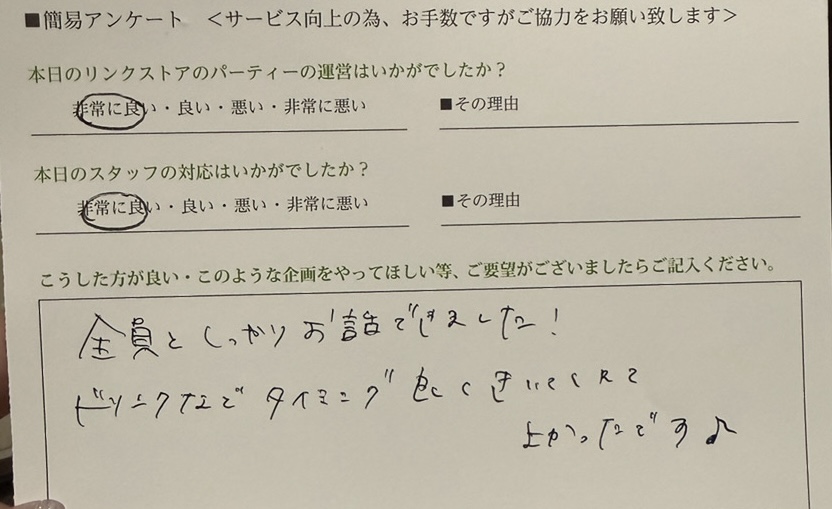 ■簡易アンケート ＜サービス向上の為、お手数ですがご協力をお願い致します＞
本日のリンクストアのパーティーの運営はいかがでしたか？
非常に良い・良い・悪い・非常に悪い ■その理由
本日のスタッフの対応はいかがでしたか？
非常に良い・良い・悪い・非常に悪い ■その理由
こうした方が良い・このような企画をやってほしい等、ご要望がございましたらご記入ください。
全員としっかりお話できました！
ドリンクなどタイミングよくきいてくれて
よかったです♪